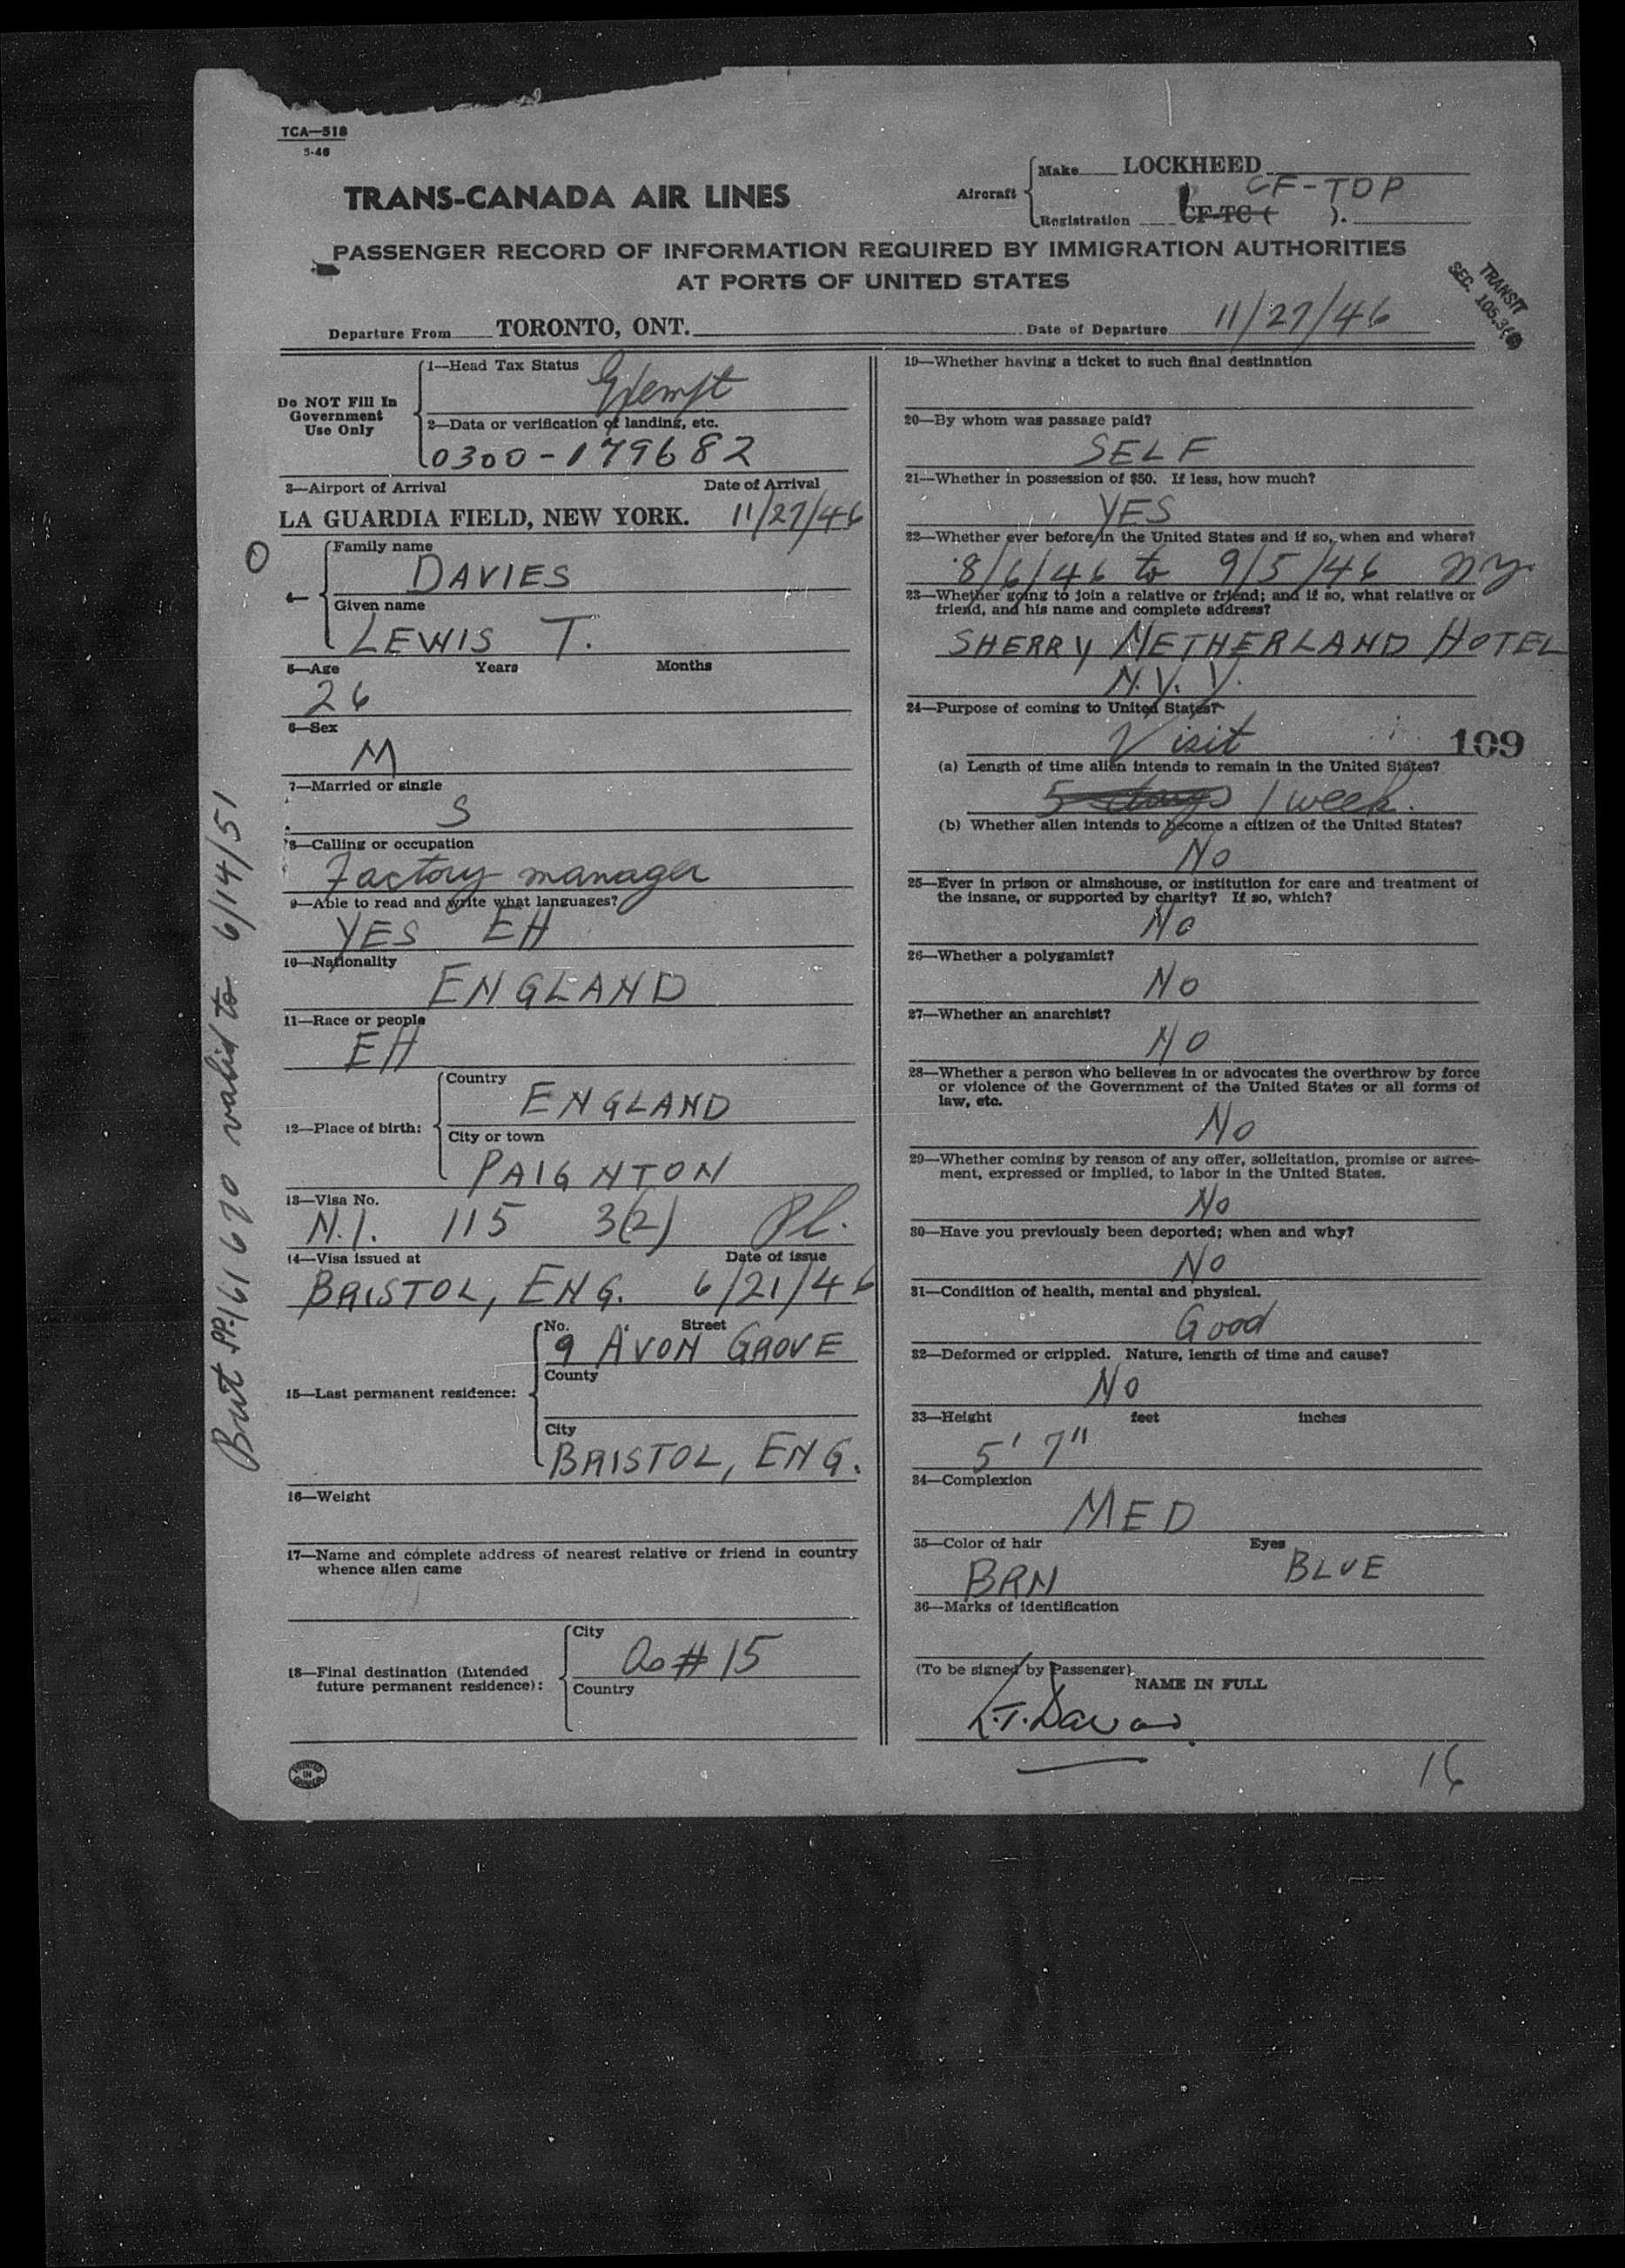 TCA—518
5-46
TRANS-CANADA AIR LINES
Aircraft
Make LOCKHEED
CF-TDP
Registration CF-TC ( ).
PASSENGER RECORD OF INFORMATION REQUIRED BY IMMIGRATION AUTHORITIES
AT PORTS OF UNITED STATES
TRANSIT
SEC. 105.3
Departure From TORONTO, ONT. Date of Departure 11/27/46
Do NOT Fill In
Government
Use Only
1—Head Tax Status Exempt
2—Data or verification of landing, etc.
0300-179682
3—Airport of Arrival Date of Arrival
LA GUARDIA FIELD, NEW YORK. 11/27/46
4—
Family name
DAVIES
Given name
LEWIS T.
5—Age Years Months
26
6—Sex
M
7—Married or single
S
8—Calling or occupation
Factory manager
9—Able to read and write what languages?
YES EH
10—Nationality
ENGLAND
11—Race or people
EH
12—Place of birth:
Country
ENGLAND
City or town
PAIGNTON
13—Visa No.
N.I. 115 3(2)
14—Visa issued at Date of issue
BRISTOL, ENG. 6/21/46
15—Last permanent residence:
No. Street
9 AVON GROVE
County
City
BRISTOL, ENG.
16—Weight
17—Name and complete address of nearest relative or friend in country
whence alien came
18—Final destination (Intended
future permanent residence):
City
As # 15
Country
PRINTED IN CANADA
Brit PP-161670 valid to 6/14/51
19—Whether having a ticket to such final destination
20—By whom was passage paid?
SELF
21—Whether in possession of $50. If less, how much?
YES
22—Whether ever before in the United States and if so, when and where?
8/6/46 to 9/5/46 NY.
23—Whether going to join a relative or friend; and if so, what relative or
friend, and his name and complete address?
SHERRY NETHERLAND HOTEL
N.Y. Y.
24—Purpose of coming to United States?
Visit
109
(a) Length of time alien intends to remain in the United States?
5 days 1 week.
(b) Whether alien intends to become a citizen of the United States?
No
25—Ever in prison or almshouse, or institution for care and treatment of
the insane, or supported by charity? If so, which?
No
26—Whether a polygamist?
No
27—Whether an anarchist?
NO
28—Whether a person who believes in or advocates the overthrow by force
or violence of the Government of the United States or all forms of
law, etc.
No
29—Whether coming by reason of any offer, solicitation, promise or agree-
ment, expressed or implied, to labor in the United States.
No
30—Have you previously been deported; when and why?
No
31—Condition of health, mental and physical.
Good
32—Deformed or crippled. Nature, length of time and cause?
No
33—Height feet inches
5' 7"
34—Complexion
MED
35—Color of hair Eyes
BRN BLUE
36—Marks of identification
(To be signed by Passenger)
NAME IN FULL
L.T. Davies
16